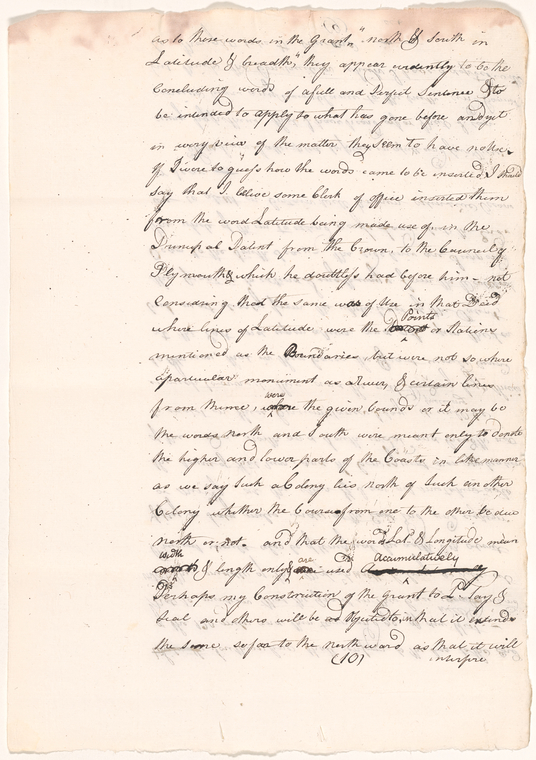 as to those words in the Grant, "north & South in
Latitude & breadth," they appear evidently to be the
Concluding words of a full and Perfect Sentence & to
be intended to apply to what has gone before and yet
in every view of the matter they seem to have no Use.
If I were to guess how the words came to be inserted, I should
say that I believe some Clerk of office inserted them
from the word Latitude being made use of in the
Principal Patent from the Crown, to the Council of
Plymouth & which he doubtless had before him - not
Considering that the same was of Use in that Deed
where lines of Latitude were the Points or Stations
mentioned as the Boundaries, but were not so where
a particular monument as a River, & certain lines
from thence, were the given bounds or it may be
the words North and South were meant only to denote
the higher and lower parts of the Coasts in like manner
as we say such a Colony lies north of such another
Colony whether the Course from one to the other be due
north or not. and that the words Lat. & Longitude mean
with & length only & are used Accumulatively
Perhaps my Construction of the Grant to Ld. Say &
Seal and others will be objected to, in that it extends
the same so far to the northward as that it will
(10) interfere